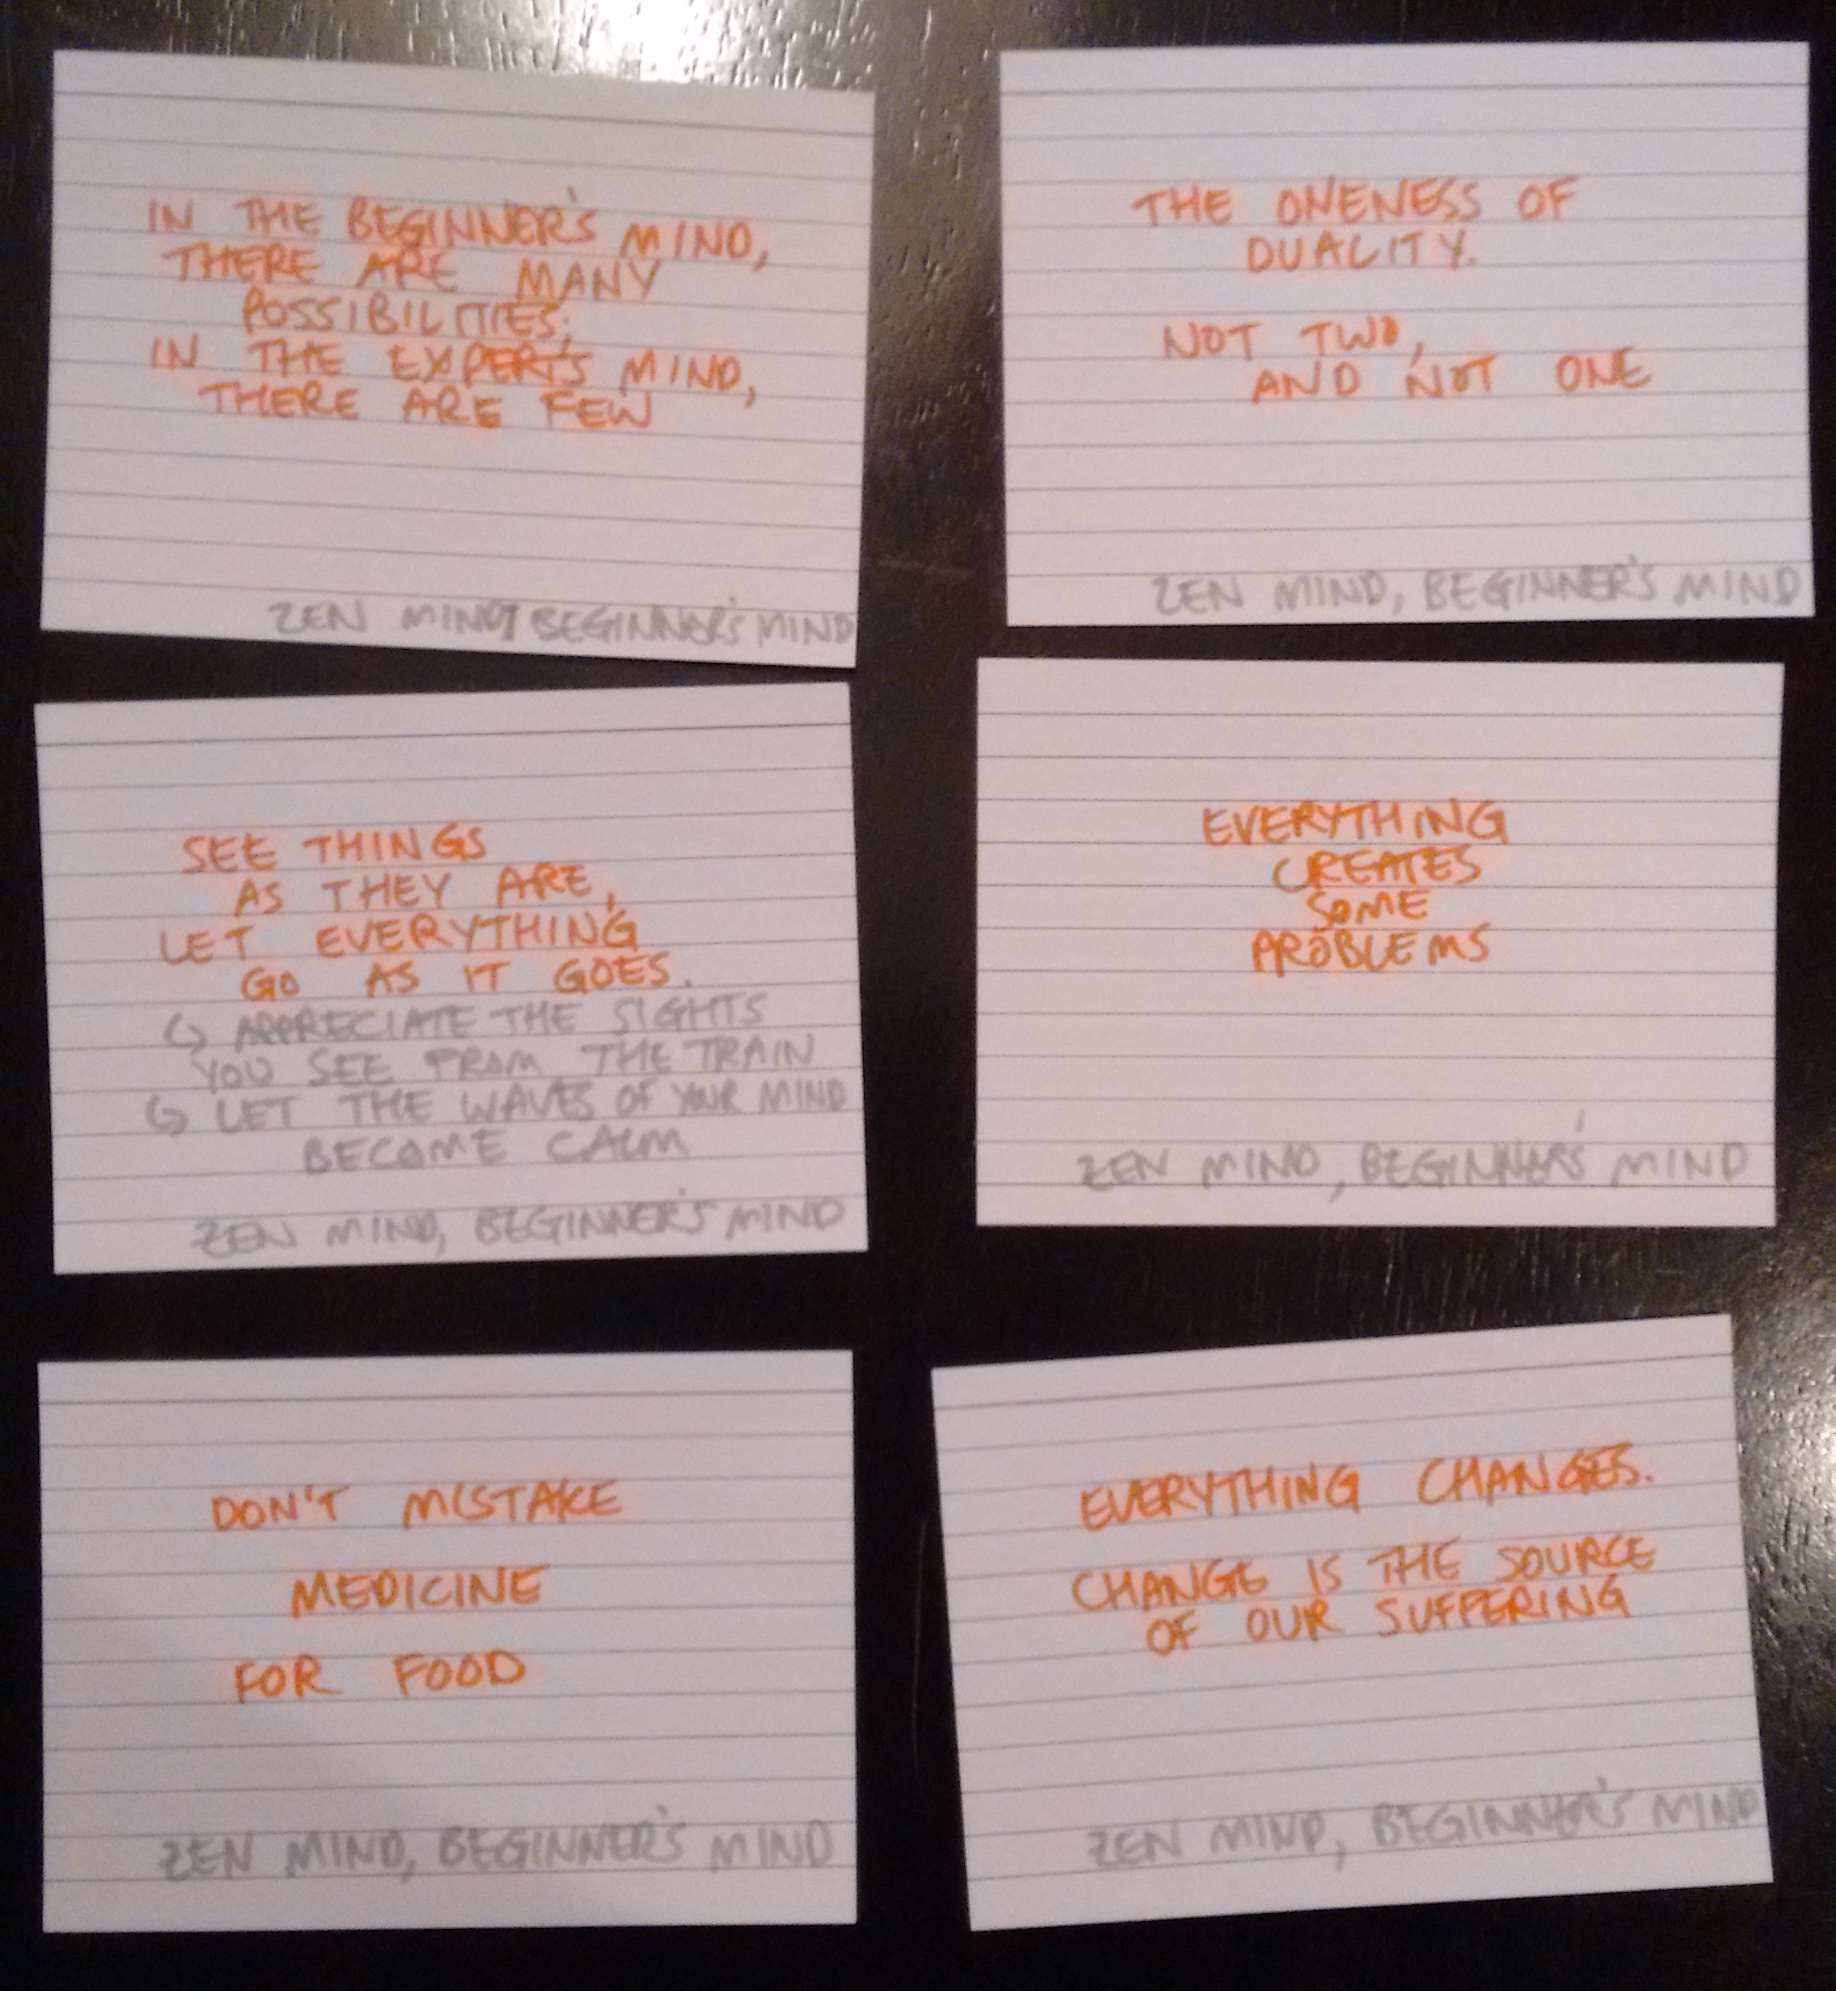 IN THE BEGINNER'S MIND,
THERE ARE MANY
POSSIBILITIES;
IN THE EXPERT'S MIND,
THERE ARE FEW
ZEN MIND, BEGINNER'S MIND
THE ONENESS OF
DUALITY.
NOT TWO,
AND NOT ONE
ZEN MIND, BEGINNER'S MIND
SEE THINGS
AS THEY ARE,
LET EVERYTHING
GO AS IT GOES.
↳ APPRECIATE THE SIGHTS
YOU SEE FROM THE TRAIN
↳ LET THE WAVES OF YOUR MIND
BECOME CALM
ZEN MIND, BEGINNER'S MIND
EVERYTHING
CREATES
SOME
PROBLEMS
ZEN MIND, BEGINNER'S MIND
DON'T MISTAKE
MEDICINE
FOR FOOD
ZEN MIND, BEGINNER'S MIND
EVERYTHING CHANGES.
CHANGE IS THE SOURCE
OF OUR SUFFERING
ZEN MIND, BEGINNER'S MIND